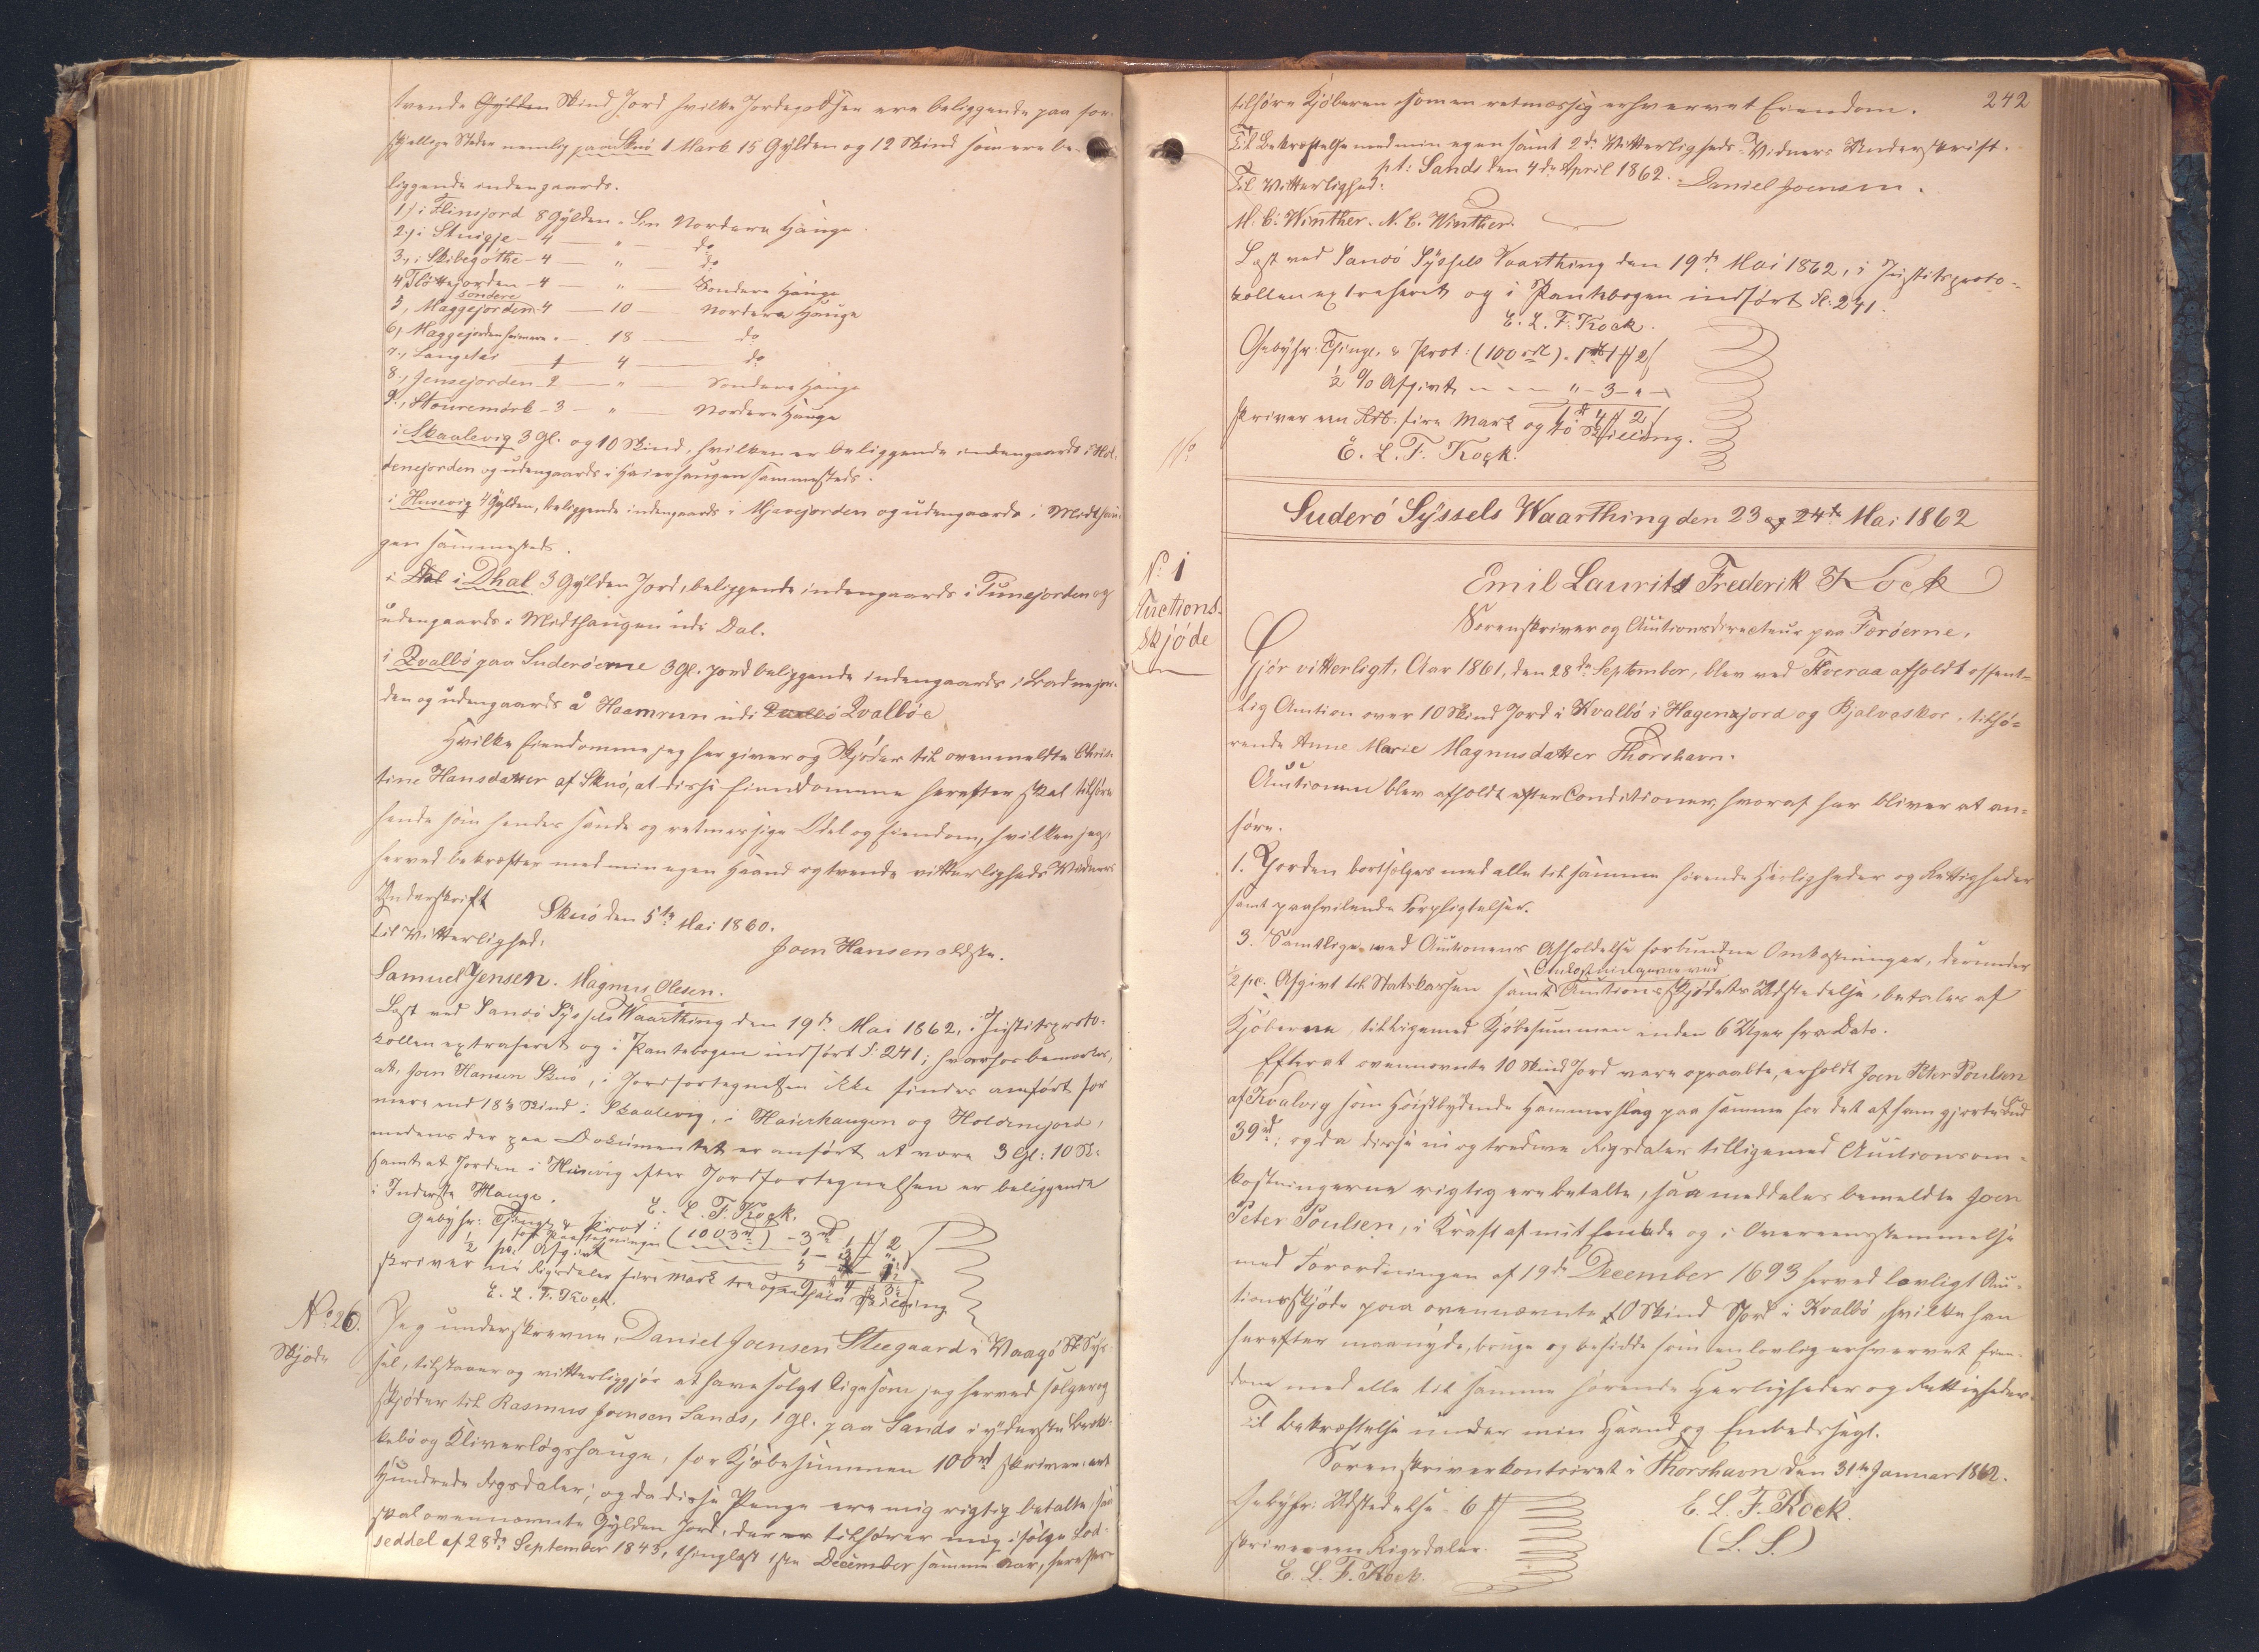 tvende Gylden Skind Jord hvilke Jordegodser ere beliggende paa for-
skjellige Steder nemlig paa Skuø 1 Mark 15 Gylden og 12 Skind som ere be-
liggende indengaards.
1) i Flinsjord 8 Gylden " Sin Nordere Hauge.
2) i Stuigje - 4 — " — do
3, i Skibegøthe - 4 — " — do
4, Fløttejorden - 4 — " — Søndere Hauge
5, søndere Maggejorden 4 — 10 — Nordere Hauge
6, Maggejorden heimere " — 18 — do
7, Langetås — 1 — 4 — do
8, Jensejorden - 2 — " — Søndere Hauge
9, Stouremørk - 3 — " — Nordere Hauge
i Skaalevig 3 Gl. og 10 Skind, hvilken er beliggende indengaards i Hol-
denejorden og udengaards i Haierhaugen sammesteds.
i Husevig 4 Gylden, beliggende indengaards i Mjavejorden og udengaards i Midthau-
gen sammesteds.
i Dal i Dhal 3 Gylden Jord, beliggende indengaards i Tunejorden og
udengaards i Midthaugen udi Dal.
i Qvalbø paa Suderøerne 3 Gl. Jord beliggende indengaards i Badnejor-
den og udengaards å Haamrun udi Qvalbø Qvalbøe
Hvilke Eiendomme jeg her giver og Skjøder til ovenmeldte Chris-
tine Hansdatter af Skuø, at disse Eiendomme herefter skal tilhøre
hende som hendes sande og retmessige Odel og Eiendom, hvilken jeg
herved bekræfter med min egen Haand og tvende vitterligheds Vidners
Underskrift
Skuø den 5te Mai 1860.
Til Vitterlighed:
Joen Hansen ældste.
Samuel Jensen. Magnus Olesen.
Læst ved Sandø Syssels Vaarthing den 19de Mai 1862, i Justitsproto-
collen extraheret og i Pantebogen indført F: 241; hvorhos bemærkes,
at Joen Hansen Skuø, i Jordfortegnelsen ikke findes anført for
mere end 18⅓ Skind i Skaalevig, i Haierhaugen og Holdenejord,
medens der paa Dokumentet er anført at være 3 Gl: 10 Sk:
samt at Jorden i Husevig efter Jordfortegnelsen er beliggende
i Inderste Mauge.
E. L. F. Kock.
Gebyhr: Thingl. & Prot: (1003 rd) - 3 rd 1 ℔ 2
for Paategninger
½ pC. Afgivt
skriver ni Rigsdaler fire Mark tre Skilling
E. L. F. Kock.
No 26.
Skjøde
Jeg underskrevne, Daniel Joensen Steegaard i Vaagø Sys-
sel, tilstaaer og vitterliggjør at have solgt ligesom jeg herved sælger og
skjøder til Rasmus Joensen Sands, 1 Gl. paa Sands i yderste
kebø og Kliverløgshauge, for Kjøbesummen 100 rd skriver: eet
Hundrede Rigsdaler; og da disse Penge ere mig rigtig betalte, saa
skal ovennævnte Gylden Jord, der er tilhører mig ifølge Lod-
seddel af 28de September 1843, thinglæst 1ste December samme Aar, herefter
242
tilhøre Kjøberen som en retmæssig erhvervet Eiendom.
Til Bekræftelse med min egen samt 2de Vitterligheds-Vidners Underskrift.
pt: Sands den 4de April 1862.
Daniel Joensen.
Til Vitterlighed:
M: C: Winther. N. C. Winther.
Læst ved Sandø Syssels Vaarthing den 19de Mai 1862, i Justitsproto-
kollen extraheret og i Pantebogen indført Fl: 241.
E. L. F. Kock.
Gebyhr: Thingl. & Prot: (100 rdl) - 1 rd 1 ℔ 2
½ % Afgivt — — " - 3 - "
1 rd 4 ℔ 2
skriver een Rd. fire Mark og to Skilling.
E. L. F. Kock.
No
Suderø Syssels Waarthing den 23 og 24de Mai 1862
No 1
Auctions-
skjøde
Emil Laurits Frederik Kock
Sorenskriver og Auctionsdirecteur paa Færøerne,
Gjør vitterligt, Aar 1861, den 28de September, blev ved Tveraa afholdt offent-
lig Auction over 10 Skind Jord i Kvalbø i Hagenæjord og Bjalveskor, tilhø-
rende Anne Marie Magnusdatter Thorshavn.
Auctionen blev afholdt efter Conditioner, hvoraf her bliver at an-
føre.
1. Jorden bortsælges med alle til samme hørende Herligheder og Rettigheder
samt paahvilende Forpligtelser.
3. Samtlige med Auctionens Afholdelse forbundne Omkostninger, derunder
½ pC. Afgivt til Statskassen samt Omkostningerne ved Auctionsskjødets Udstedelse, betales af
Kjøberne, tilligemed Kjøbesummen inden 6 Uger fra Dato.
Efterat ovennævnte 10 Skind Jord vare opraabte, erholdt Joen Peter Poulsen
af Kvalvig som Høistbydende Hammerslag paa samme for det af ham gjorte Bud
39 rd; og da disse ni og tredive Rigsdaler tilligemed Auctionsom-
kostningerne rigtig ere betalte, saa meddeles bemeldte Joen
Peter Poulsen, i Kraft af mit Embede og i Overeensstemmelse
med Forordningen af 19de December 1693 herved lovligt Auc-
tionsskjøde paa ovennævnte 10 Skind Jord i Kvalbø, hvilke han
herefter maa nyde, bruge og besidde som en lovlig erhvervet Eien-
dom med alle til samme hørende Herligheder og Rettigheder.
Til Bekræftelse under min Haand og Embedssegl.
Sorenskriverkontoiret i Thorshavn den 31te Januar 1862.
E. L. F. Kock.
(L. S.)
Gebyhr: Udstedelse - 6 ℔
skriver een Rigsdaler.
E. L. F. Kock.